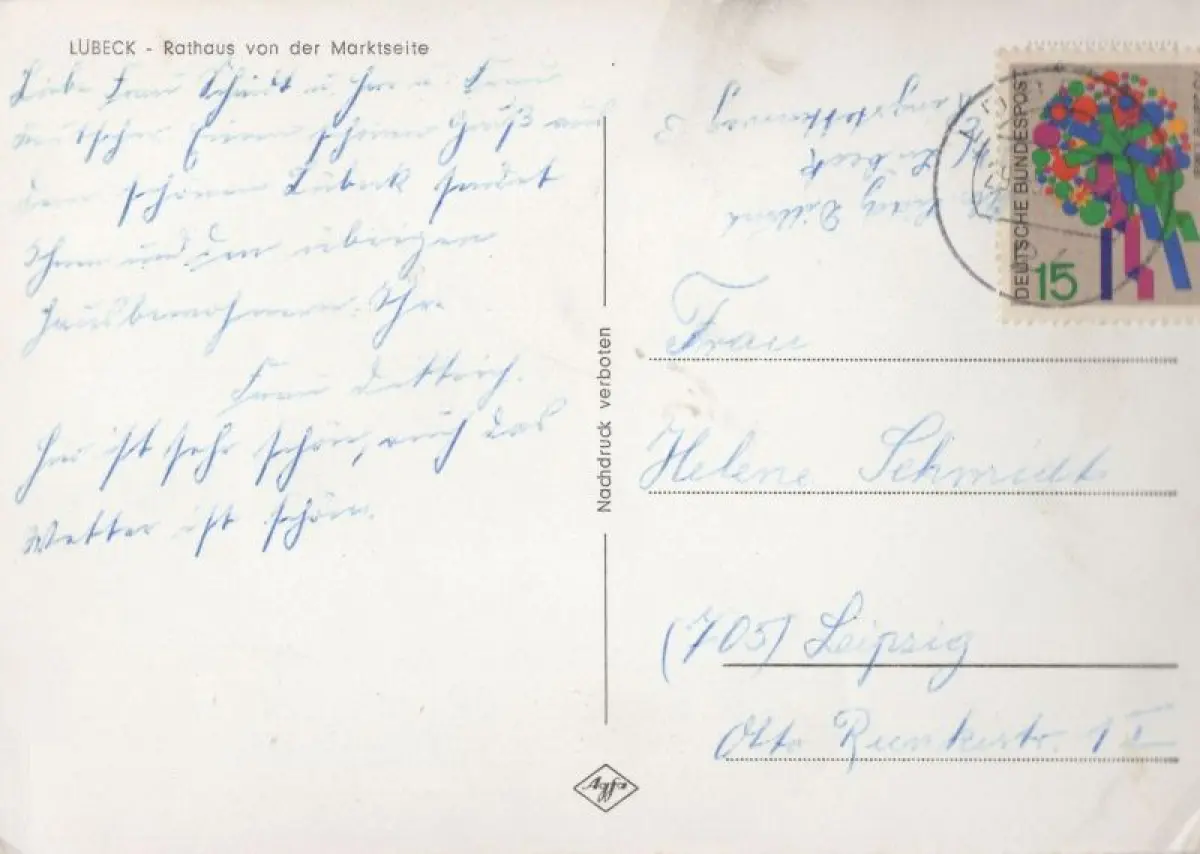 LÜBECK - Rathaus von der Marktseite
Liebe Frau Schmidt u. Herr u. Frau
Einen schönen Gruß aus
dem schönen Lübeck sendet
Ihnen und den übrigen
Hausbewohnern Ihre
Frau Dittrich.
Hier ist sehr schön, auch das
Wetter ist schön.
Nachdruck verboten
Agfa
DEUTSCHE BUNDESPOST
15
Lübeck
Frau
Helene Schmidt
(705) Leipzig
Otto Runkistr. 1 I